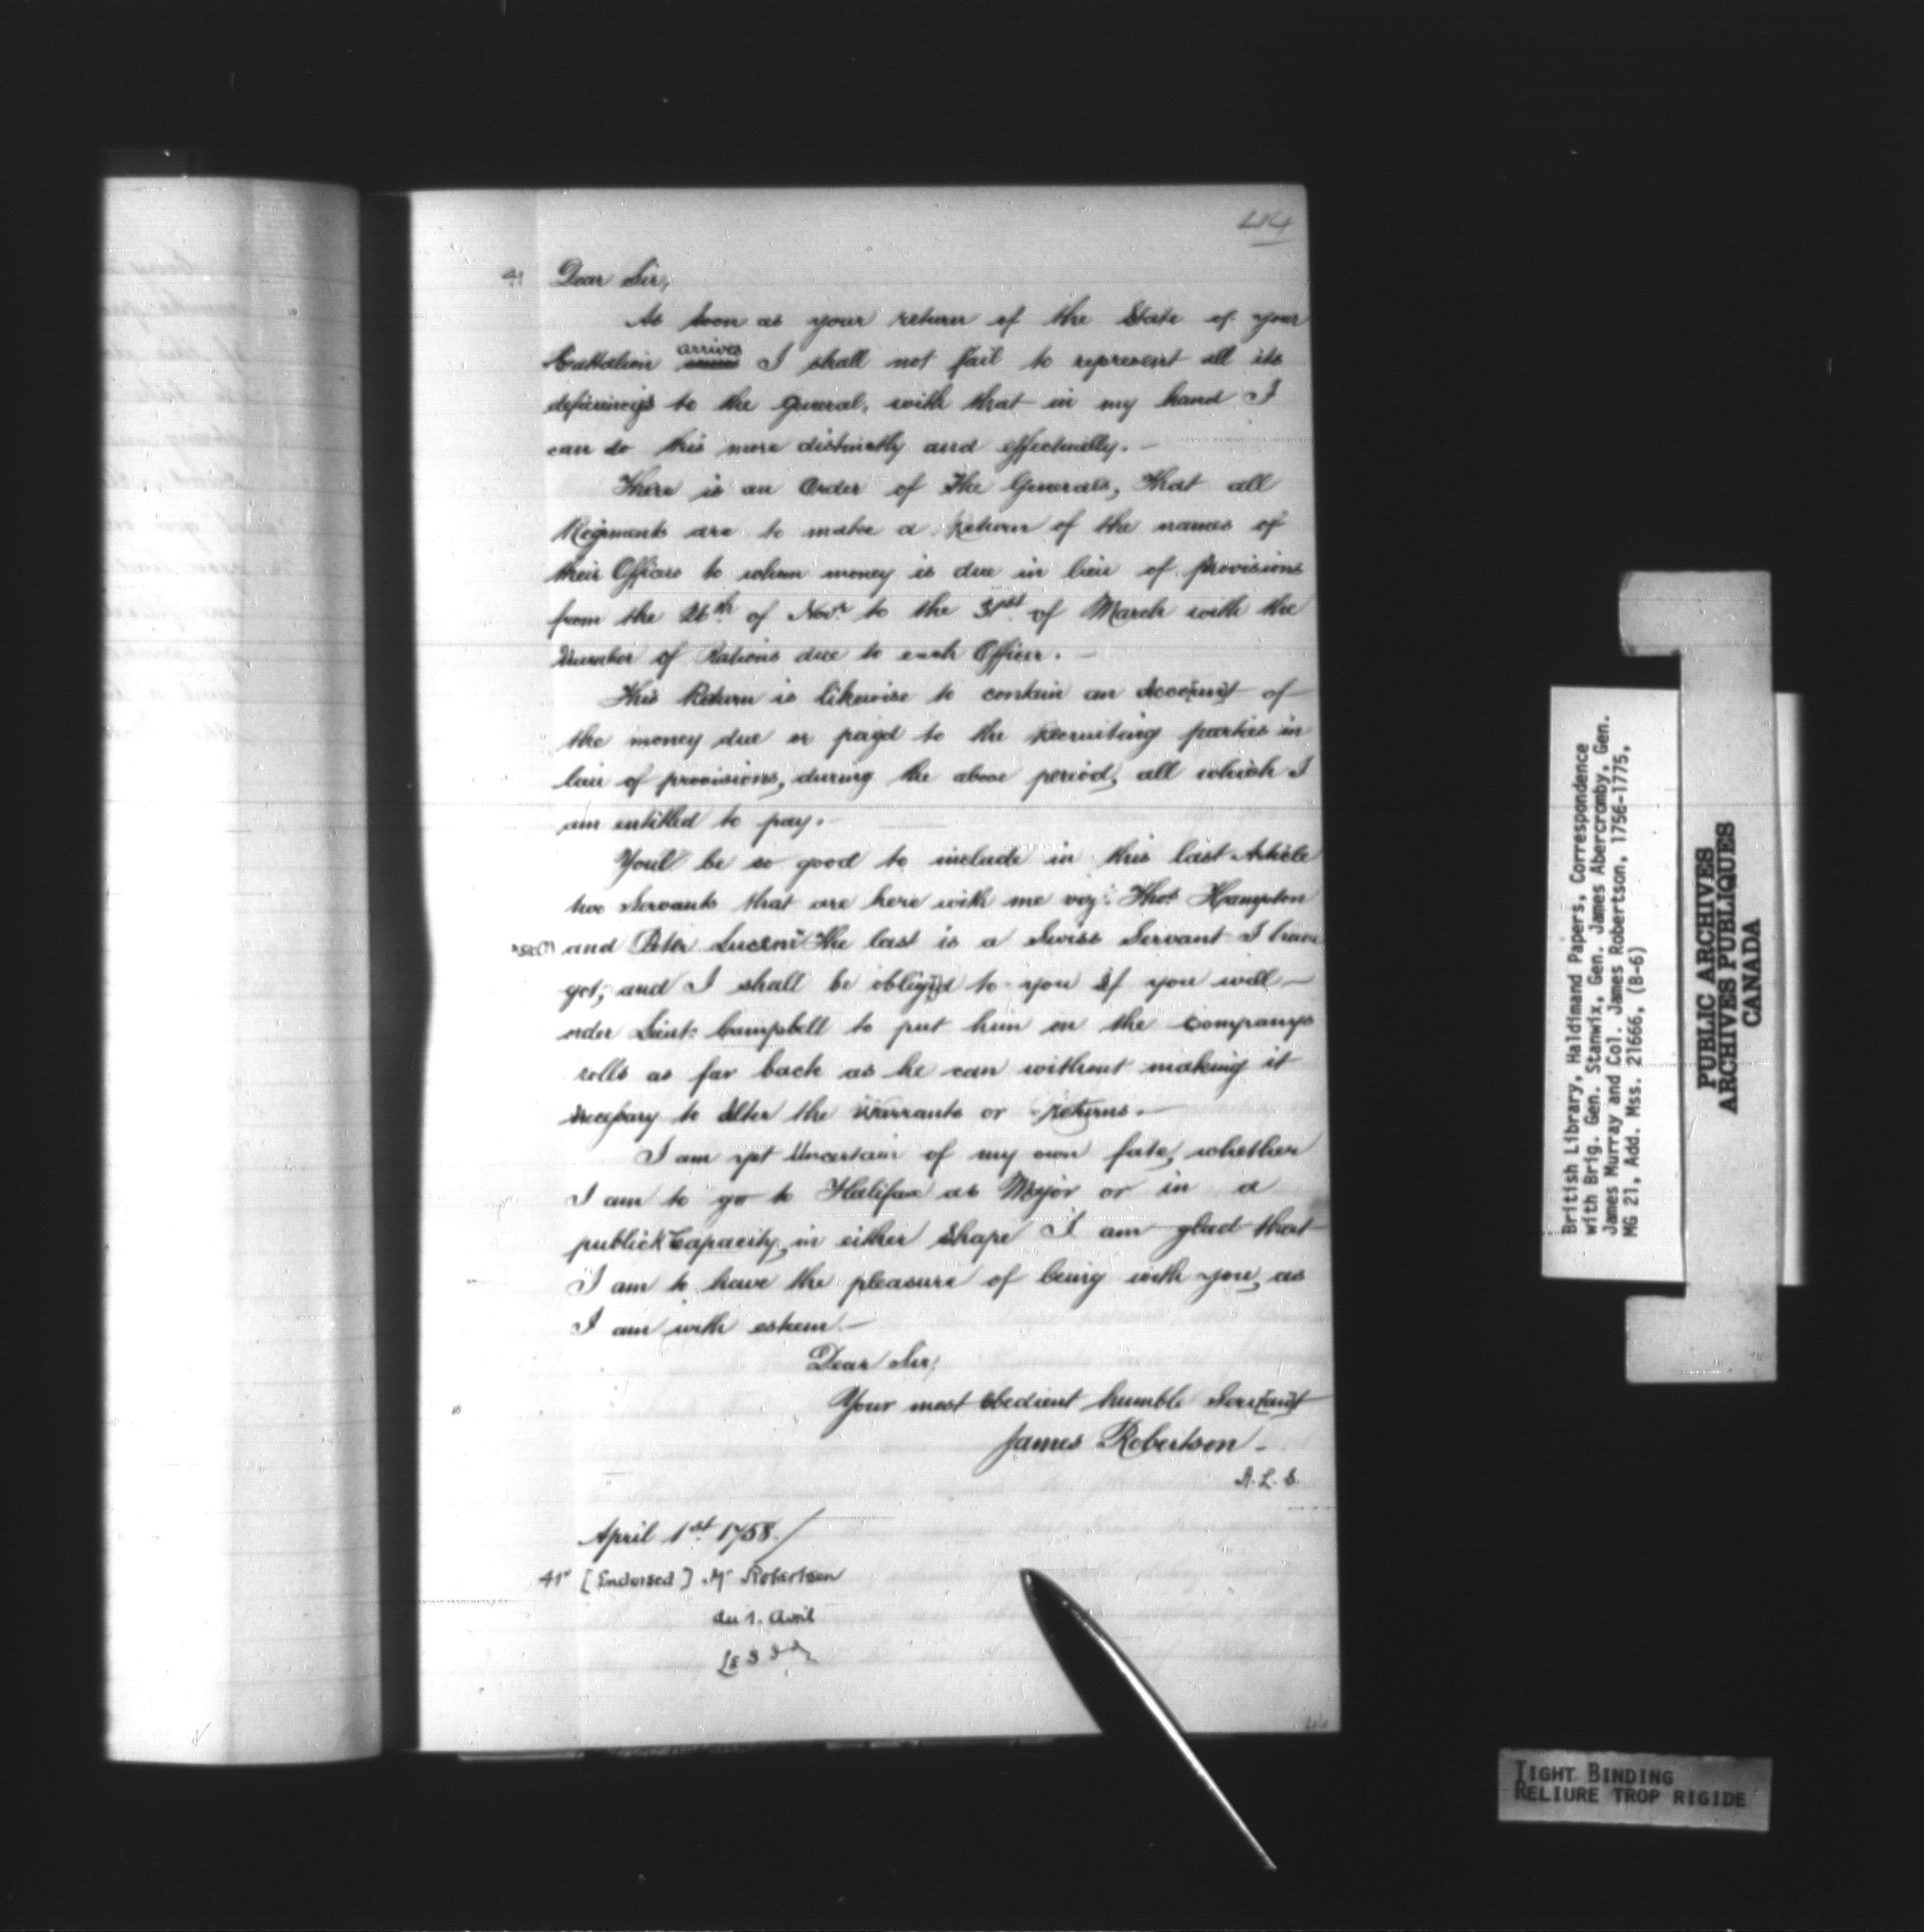 44
41 Dear Sir,
As soon as your return of the State of your
Battalion arrives I shall not fail to represent all its
deficiencys to the General, with that in my hand I
can do this more distinctly and effectually. —
There is an Order of The Generals, That all
Regiments are to make a Return of the names of
their Officers to whom money is due in lieu of provisions
from the 26th of Novr. to the 31st of March with the
Number of Rations due to each Officer. —
This Return is likewise to contain an Acco[un]t of
the money due or payd to the Recruiting parties in
lieu of provisions, during the above period, all which I
am entitled to pay.
Youll be so good to include in this last Article
two Servants that are here with me viz: Thos Hampton
and Peter The last is a Swiss Servant I have
got; and I shall be obliged to you if you will
order Lieut: Campbell to put him on the Companys
rolls as far back as he can without making it
necessary to alter the Warrants or Returns. —
I am yet Uncertain of my own fate, whether
I am to go to Halifax as Major or in a
publick Capacity, in either Shape I am glad that
I am to have the pleasure of being with you, as
I am with esteem. —
Dear Sir;
Your most obedient humble Serv[an]t
James Robertson —
A. L. S.
April 1st 1758./
41v [Endorsed] Mr Robertson
du 1. Avril
British Library, Haldimand Papers, Correspondence
with Brig. Gen. Stanwix, Gen. James Abercromby, Gen.
James Murray and Col. James Robertson, 1756-1775,
MG 21, Add. Mss. 21666, (B-6)
PUBLIC ARCHIVES
ARCHIVES PUBLIQUES
CANADA
TIGHT BINDING
RELIURE TROP RIGIDE